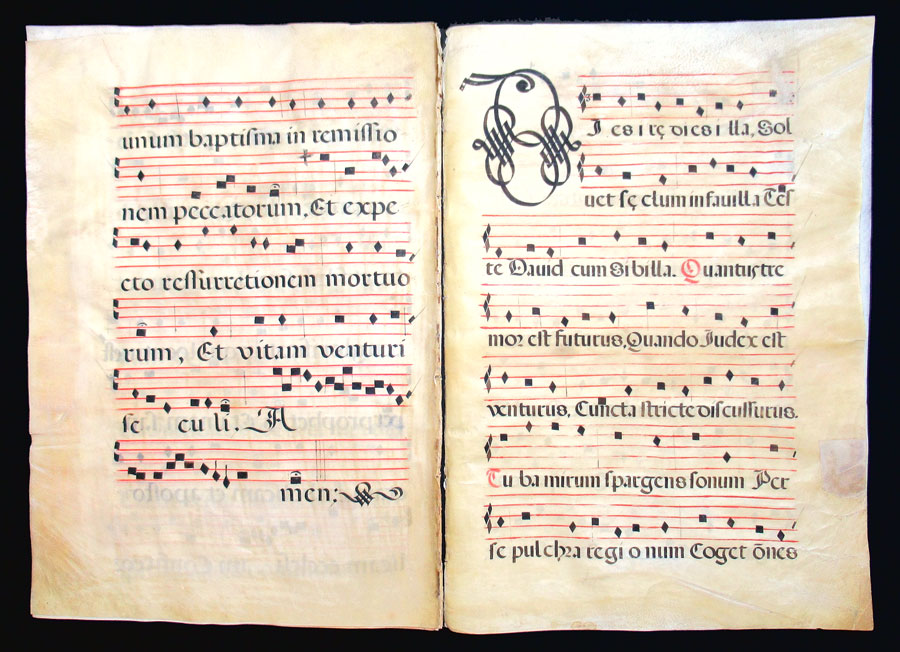 unum baptisma in remissio
nem peccatorum, Et expe
cto ressurretionem mortuo
rum, Et vitam venturi
se culi. A
men:
DI es i rę dies i lla, Sol
uet sę clum in fauilla Tes
te Dauid cum sibilla. Quantus tre
mor est futurus, Quando Iudex est
venturus, Cuncta stricte discussurus.
Tu ba mirum spargens sonum Per
se pul chra regi o num Coget õnes